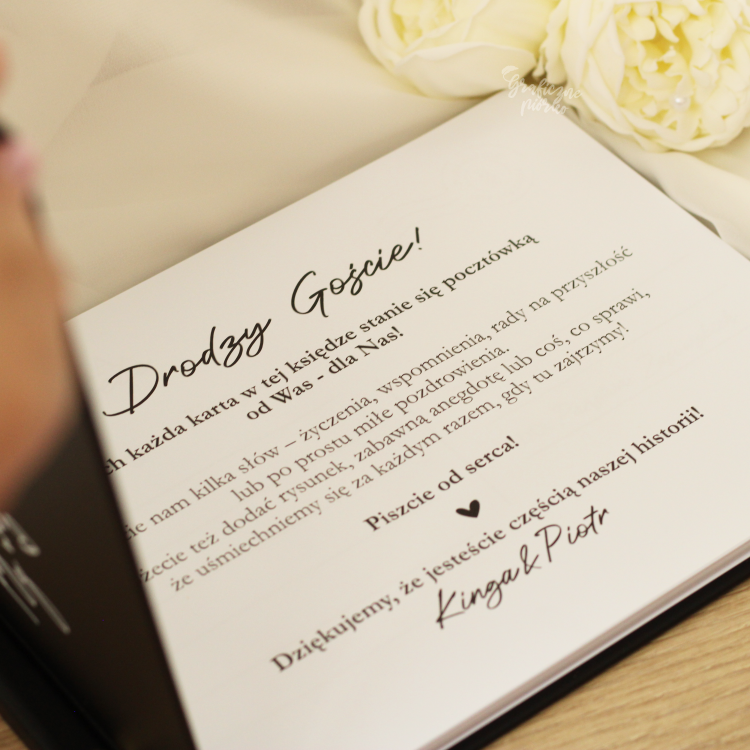 Graficzne
piórko
Drodzy Goście!
ch każda karta w tej księdze stanie się pocztówką
od Was - dla Nas!
ie nam kilka słów – życzenia, wspomnienia, rady na przyszłość
lub po prostu miłe pozdrowienia.
żecie też dodać rysunek, zabawną anegdotę lub coś, co sprawi,
że uśmiechniemy się za każdym razem, gdy tu zajrzymy!
Piszcie od serca!
Dziękujemy, że jesteście częścią naszej historii!
Kinga & Piotr